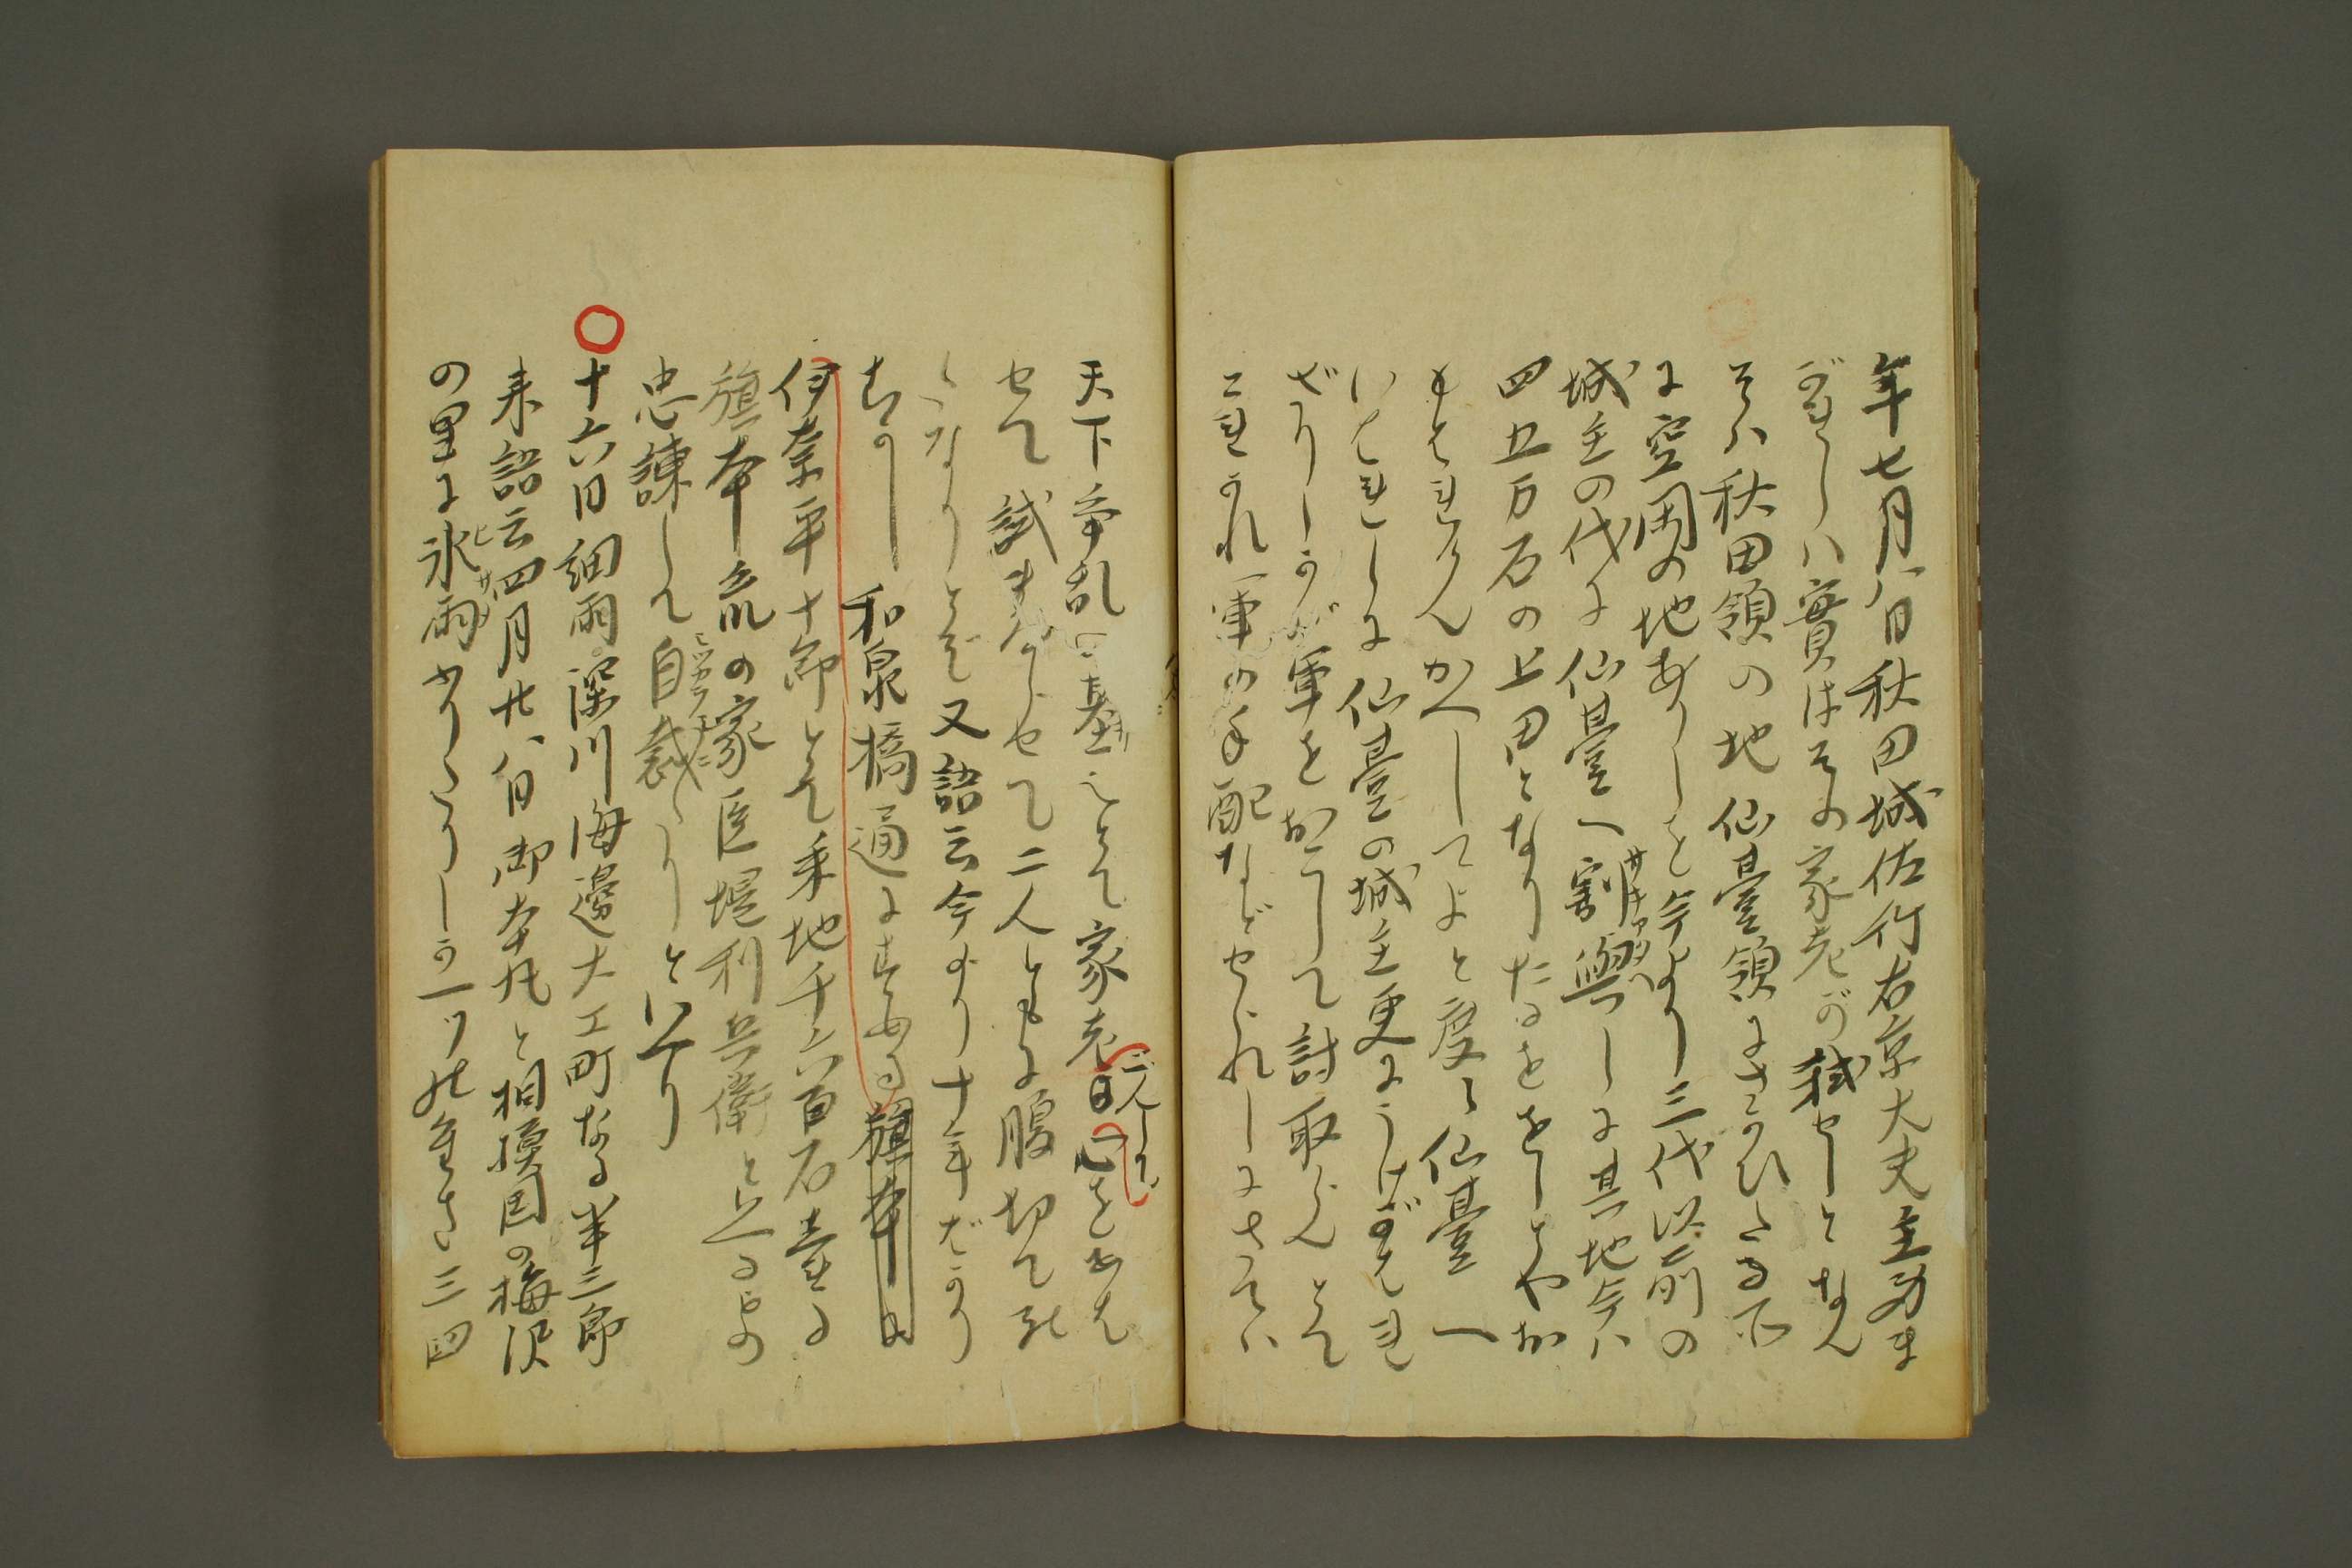 年七月八日秋田城佐竹右京大夫主身ま
がれしハ實はその家老が弑せしとなん
そハ秋田領の地仙臺領にさかひたる所
に空閑の地ありしを今より三代以前の
城主の代に仙臺へ割與しに其地今ハ
四五万石の上田となりたるををしとやお
もはれけんかへしてよと度々仙臺へ
いはれしに仙臺の城主更にうけがはれ
ざりしかが軍をおこして討取らんとて
これかれ軍の手配などせられしにさてハ
天下争乱の基也とて家老日心をあは
せて弑まゐらせて二人ともに腹切て死
しなりとぞ又語云今より十年ばかり
むかし和泉橋通にすめる旗本に
伊奈平十郎とて采地千六百石壹る
旗本衆の家臣堤利兵衛と云る者
忠諌して自裁しりといへり
○十六日細雨深川海邊大工町なる半三郎
来語云四月廿八日御本丸と相模国の梅沢
の里に氷雨ふりたりしか一ツの重さ三四